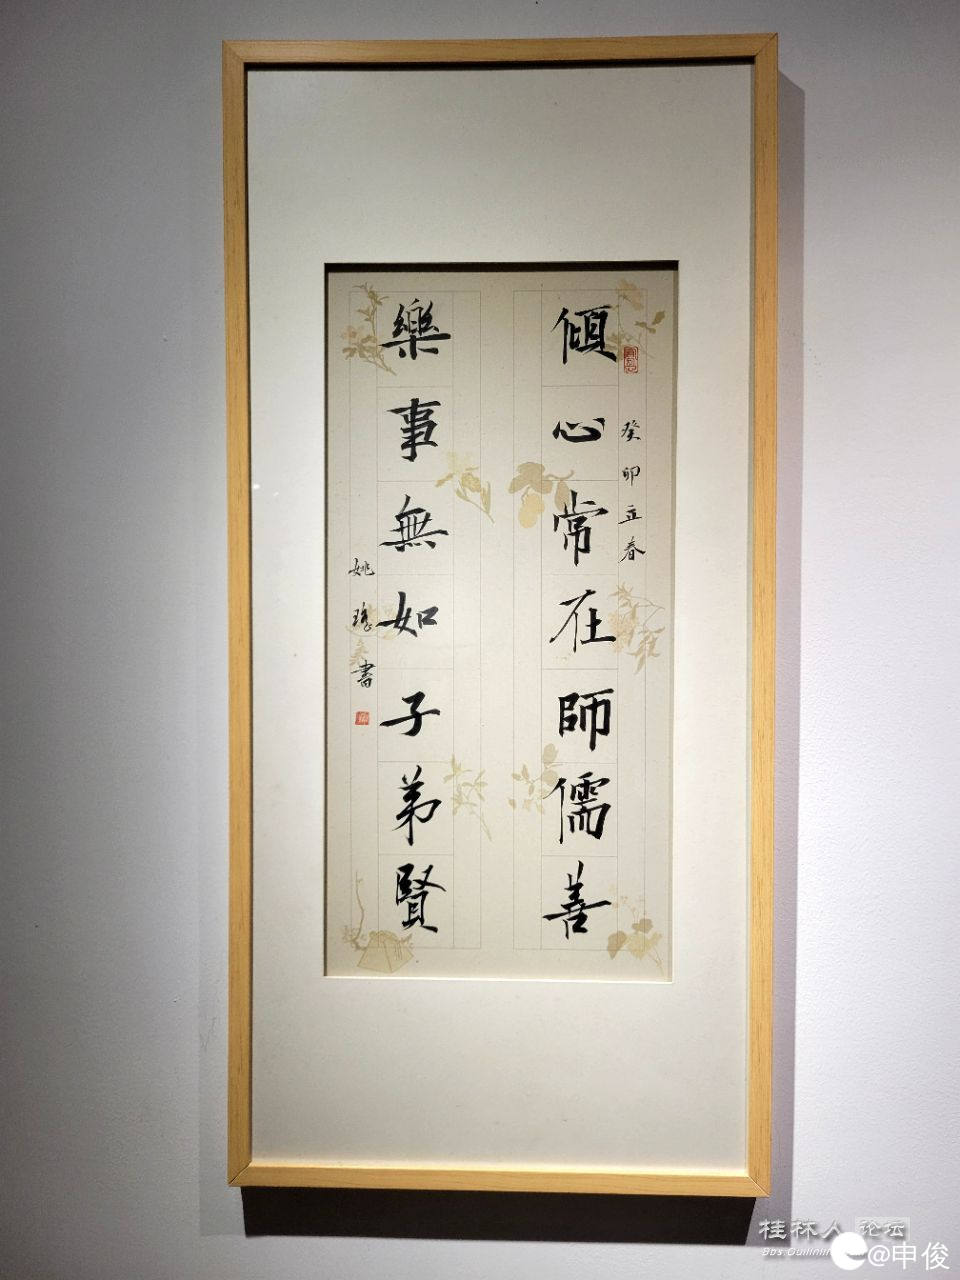 癸卯立春
傾心常在師儒善
樂事無如子弟賢
姚瑤書
桂林人论坛
@申俊